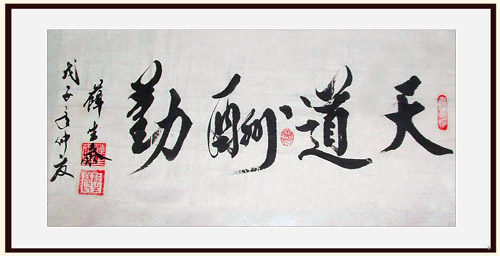 天道酬勤
戊子年仲夏
薛生